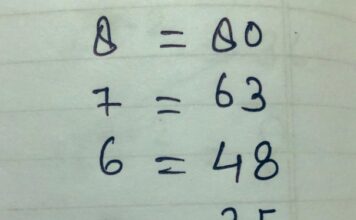 8 = 80
7 = 63
6 = 48